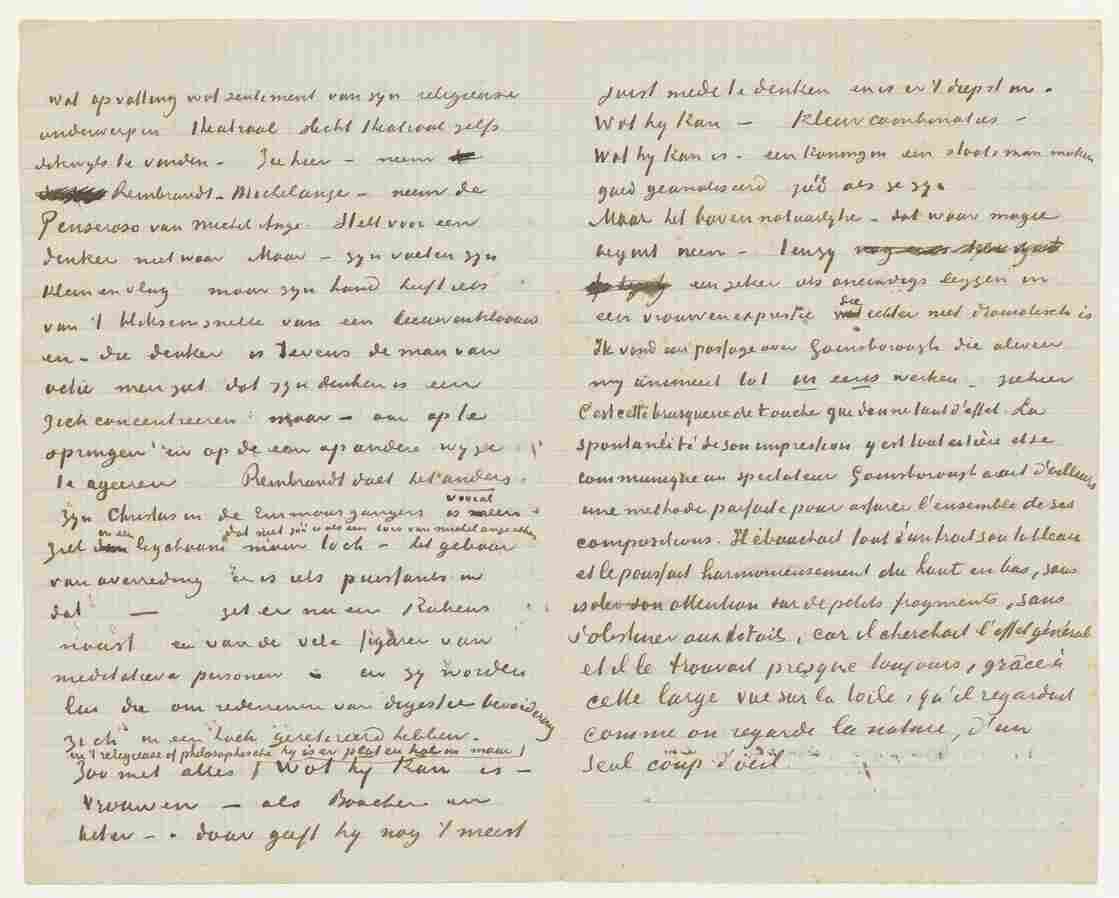 wat opvatting wat sentement van zyn religieuse
onderwerpen theatraal slecht theatraal zelfs
dikwyls te vinden – Zie hier – neem
Rembrandt – Michelange – neem de
Penseroso van Michel Ange. Stelt voor een
denker niet waar Maar – zyn voeten zyn
klein en vlug maar zyn hand heeft iets
van 't bliksemsnelle van een leeuwenklaauw
en – die denker is tevens de man van
actie men ziet dat zyn denken is een
zich concentreeren maar – om op te
springen en op de een op andere wyze
te ageeren Rembrandt doet het anders.
vooral
Zyn Christus in de Emmausgangers is
dat niet zoo is als een van Michel Ange
ziel in een ligchaam maar toch – het gebaar
van overreding er is iets puissants in
dat — zet er nu een Rubens
naast een van de vele figuren van
meditatieve personen – en zy worden
lui die om redenen van digestie bevordering
zich in een hoek geretireerd hebben.
in 't religieuse of philosophische hy is er plat en hol in maar
Zoo met alles / Wat hy kan is –
vrouwen – als Boucher en
beter – . daar geeft hy nog 't meest
juist mede te denken en is er 't diepst in.
Wat hy kan – kleurcombinaties –
Wat hy kan is – een koningin een staatsman maken
goed geanaliseerd zóó als ze zyn
Maar het bovennatuurlyke – dat waar magie
begint neen – tenzy
een zeker iets oneindigs leggen in
die
een vrouwenexpressie echter niet dramatisch is
Ik vond een passage over Gainsborough die alweer
my animeert tot in eens werken – zie hier
C'est cette brusquerie de touche qui donne tant d'effet. La
spontanéité de son impression y est tout entière et se
communique au spectateur Gainsborough avait d'ailleurs
une methode parfaite pour assurer l'ensemble de ses
compositions. Il ébauchait tout d'un trait son tableau
et le poussait harmonieusement du haut en bas, sans
isoler son attention sur de petits fragments, sans
s'obstiner aux details, car il cherchait l'effet général
et il le trouvait presque toujours, grâce à
cette large vue sur la toile, qu'il regardait
comme on regarde la nature, d'un
seul coup d'oeil